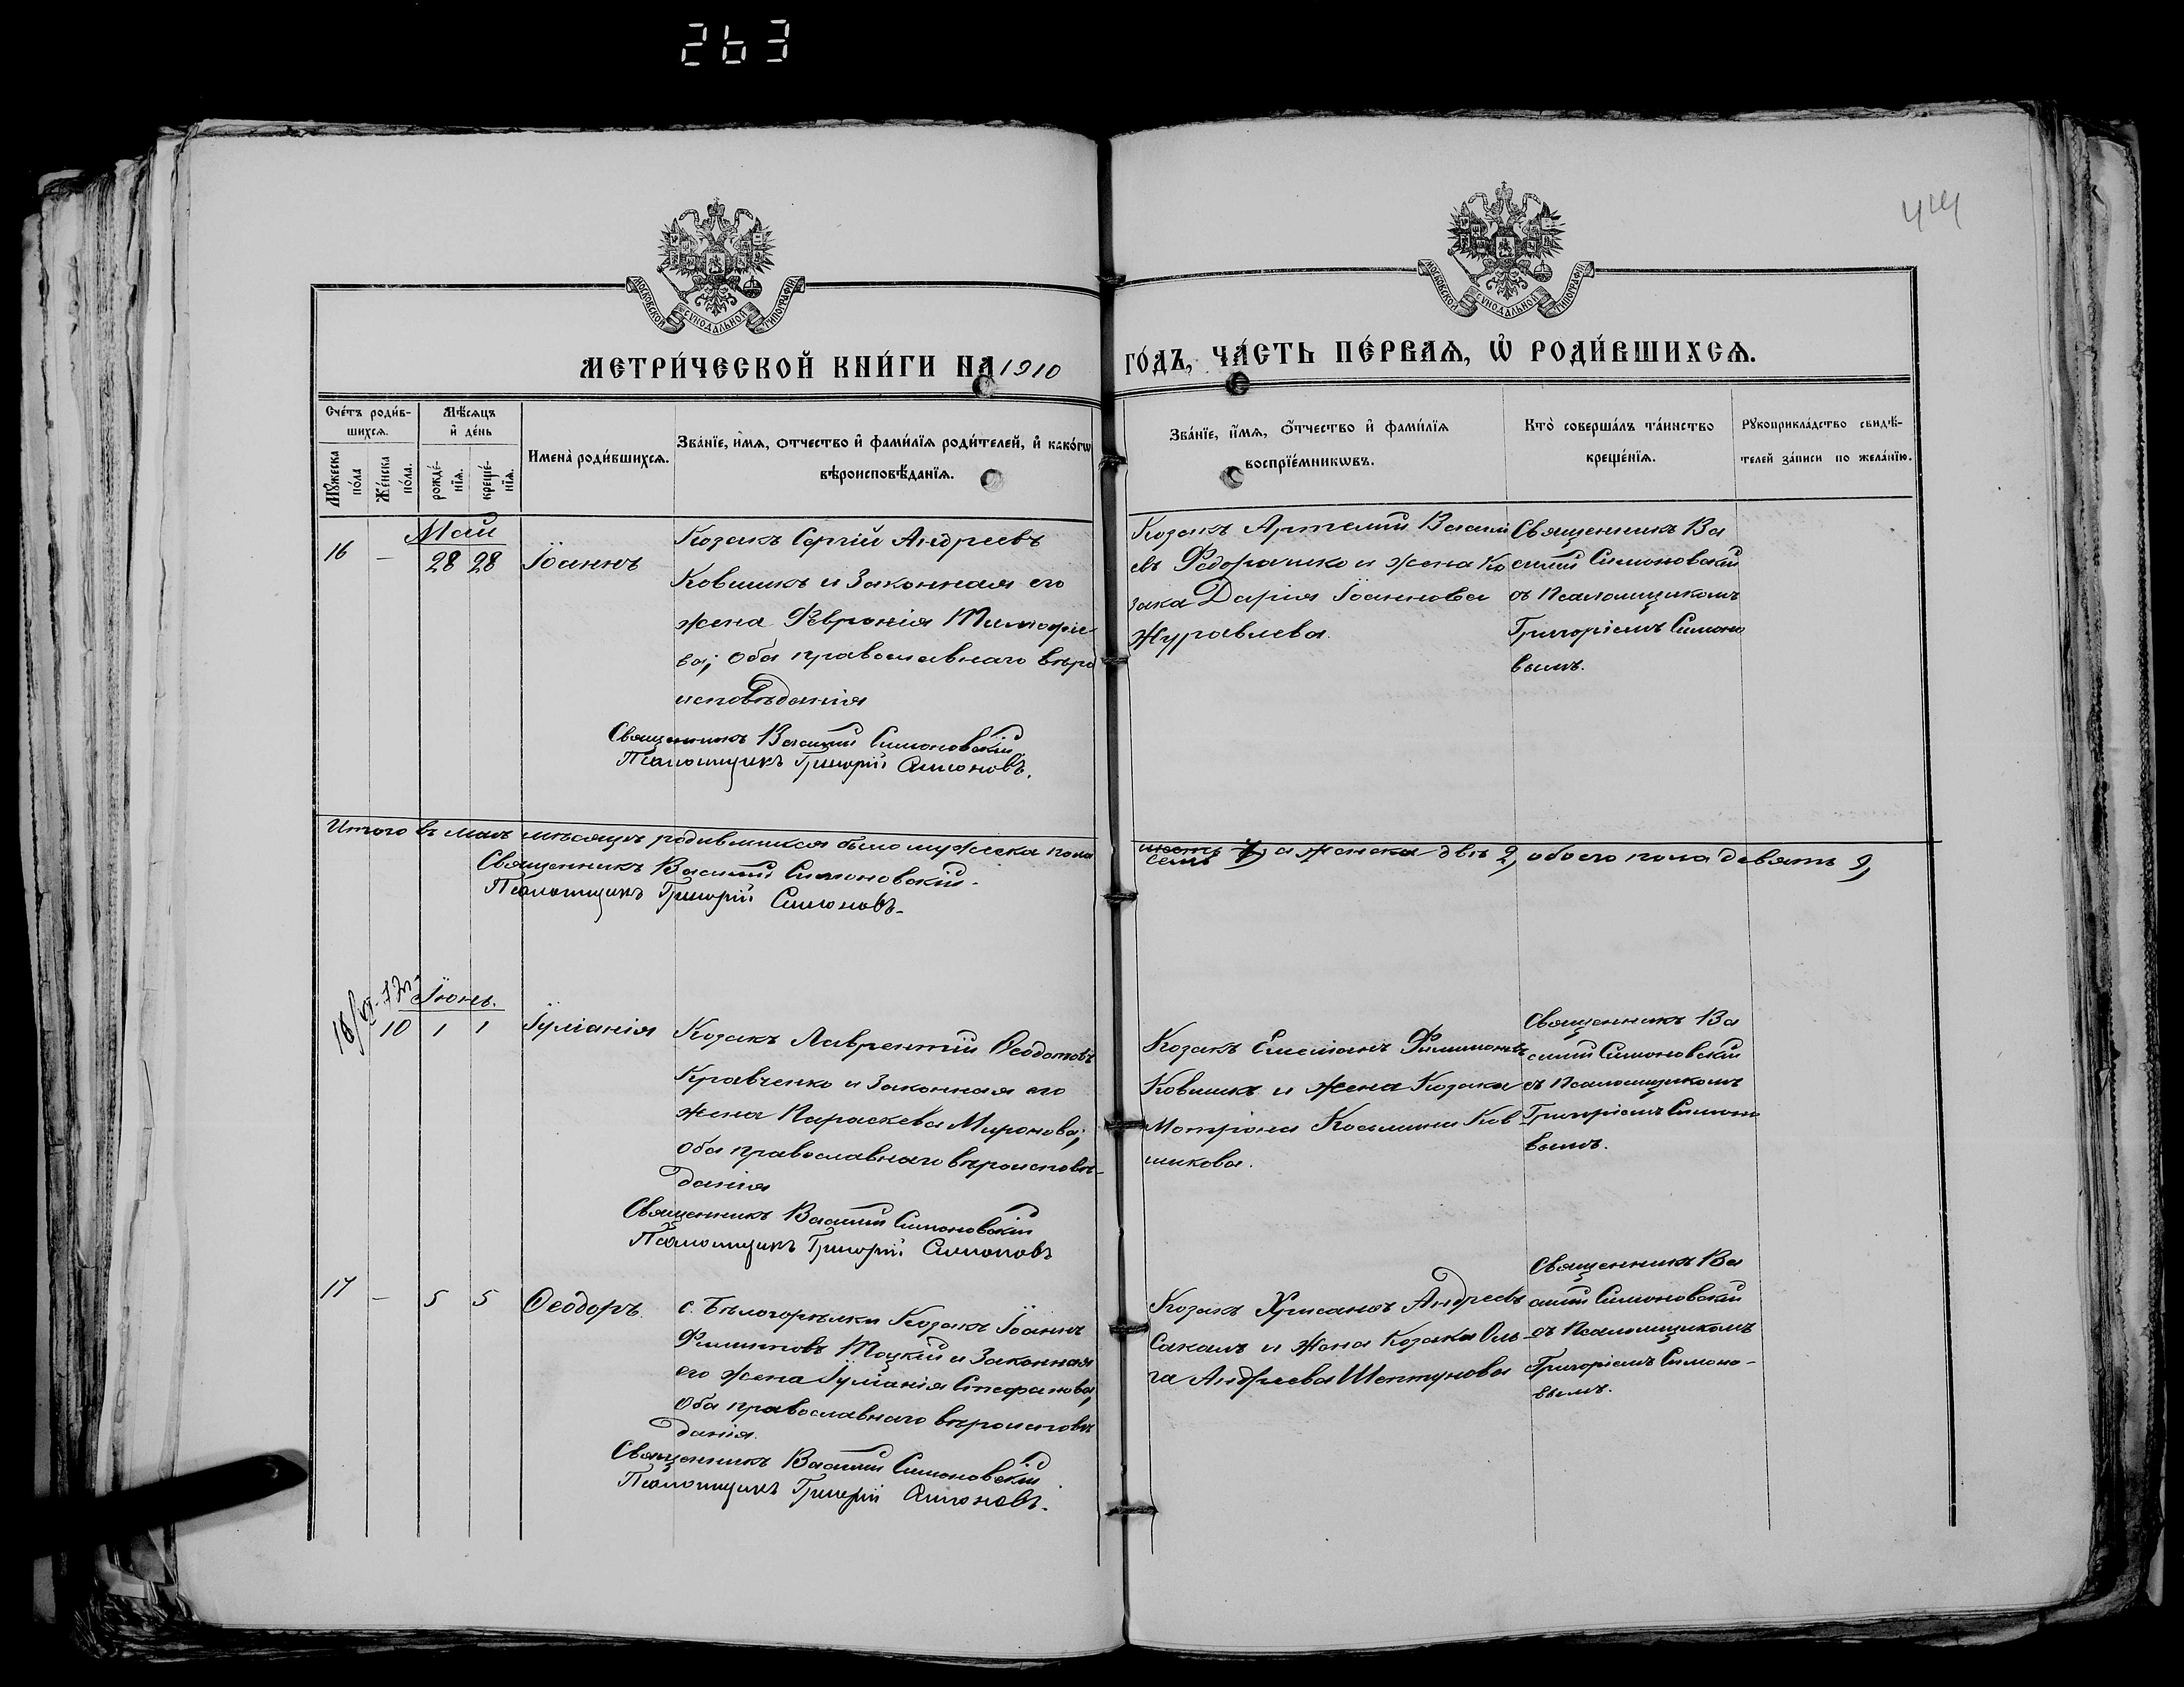 263
444
МОСКОВСКОЙ СѴНОДАЛЬНОЙ ТИПОГРАФІИ
МОСКОВСКОЙ СѴНОДАЛЬНОЙ ТИПОГРАФІИ
МЕТРИ́ЧЕСКОЙ КНИ́ГИ НА 1910 ГО́ДЪ, ЧА́СТЬ ПЕ́РВАѦ, Ѡ҆ РОДИ́ВШИХСѦ.
Сче́тъ роди́в-
шихсѧ.
Мꙋ́жеска по́ла
Же́нска по́ла.
Мѣ́сѧцъ и҆ де́нь
рожде́-нїѧ.
креще́-нїѧ.
Имена̀ роди́вшихсѧ.
Зва́нїе, и҆́мѧ, ѻ҆́тчество и҆ фами́лїѧ роди́телей, и҆ како́гѡ
вѣроисповѣ́данїѧ.
Зва́нїе, и҆́мѧ, ѻ҆́тчество и҆ фами́лїѧ
воспрїе́мникѡвъ.
Кто̀ соверша́лъ та́инство
креще́нїѧ.
Рꙋкоприкла́дство свидѣ́-
телей за́писи по жела́нїю.
Май
16 — 28 28 Іоаннъ
Козакъ Сергій Андреевъ
Ковшикъ и законная его
жена Февронія Тимофіе
ва; оба православнаго вѣро
исповѣданія
Священникъ Василій Симоновскій
Псаломщикъ Григорій Симоновъ.
Козакъ Артемій Васили
евъ Федорченко и жена Ко
зака Дарія Іоаннова
Журавлева.
Священникъ Ва
силій Симоновскій
съ Псаломщикомъ
Григоріемъ Симоно
вымъ.
Итого въ маѣ мѣсяцѣ родившихся было мужеска пола
шесть семь 7, а женска двѣ 2, обоего пола девять 9,
Священникъ Василій Симоновскій.
Псаломщикъ Григорій Симоновъ.
Іюнь.
10 1 1 Іуліанія
Козакъ Лаврентій Ѳеодотовъ
Кравченко и законная его
жена Параскева Миронова;
оба православнаго вѣроисповѣ-
данія
Священникъ Василій Симоновскій
Псаломщикъ Григорій Симоновъ
Козакъ Емеліанъ Филимоновъ
Ковшикъ и жена Козака
Матрона Космина Ков
шикова.
Священникъ Ва
силій Симоновскій
съ Псаломщикомъ
Григоріемъ Симоно
вымъ.
17 — 5 5 Ѳеодоръ
с. Бѣлогорѣлки Козакъ Іоаннъ
Филипповъ Тоцкій и законная
его жена Іуліанія Стефанова,
оба православнаго вѣроисповѣ
данія.
Священникъ Василій Симоновскій
Псаломщикъ Григорій Симоновъ.
Козакъ Хрисанѳъ Андреевъ
Сакалъ и жена Козака Оль
га Андреева Шептунова
Священникъ Ва
силій Симоновскій
съ Псаломщикомъ
Григоріемъ Симоно-
вымъ.